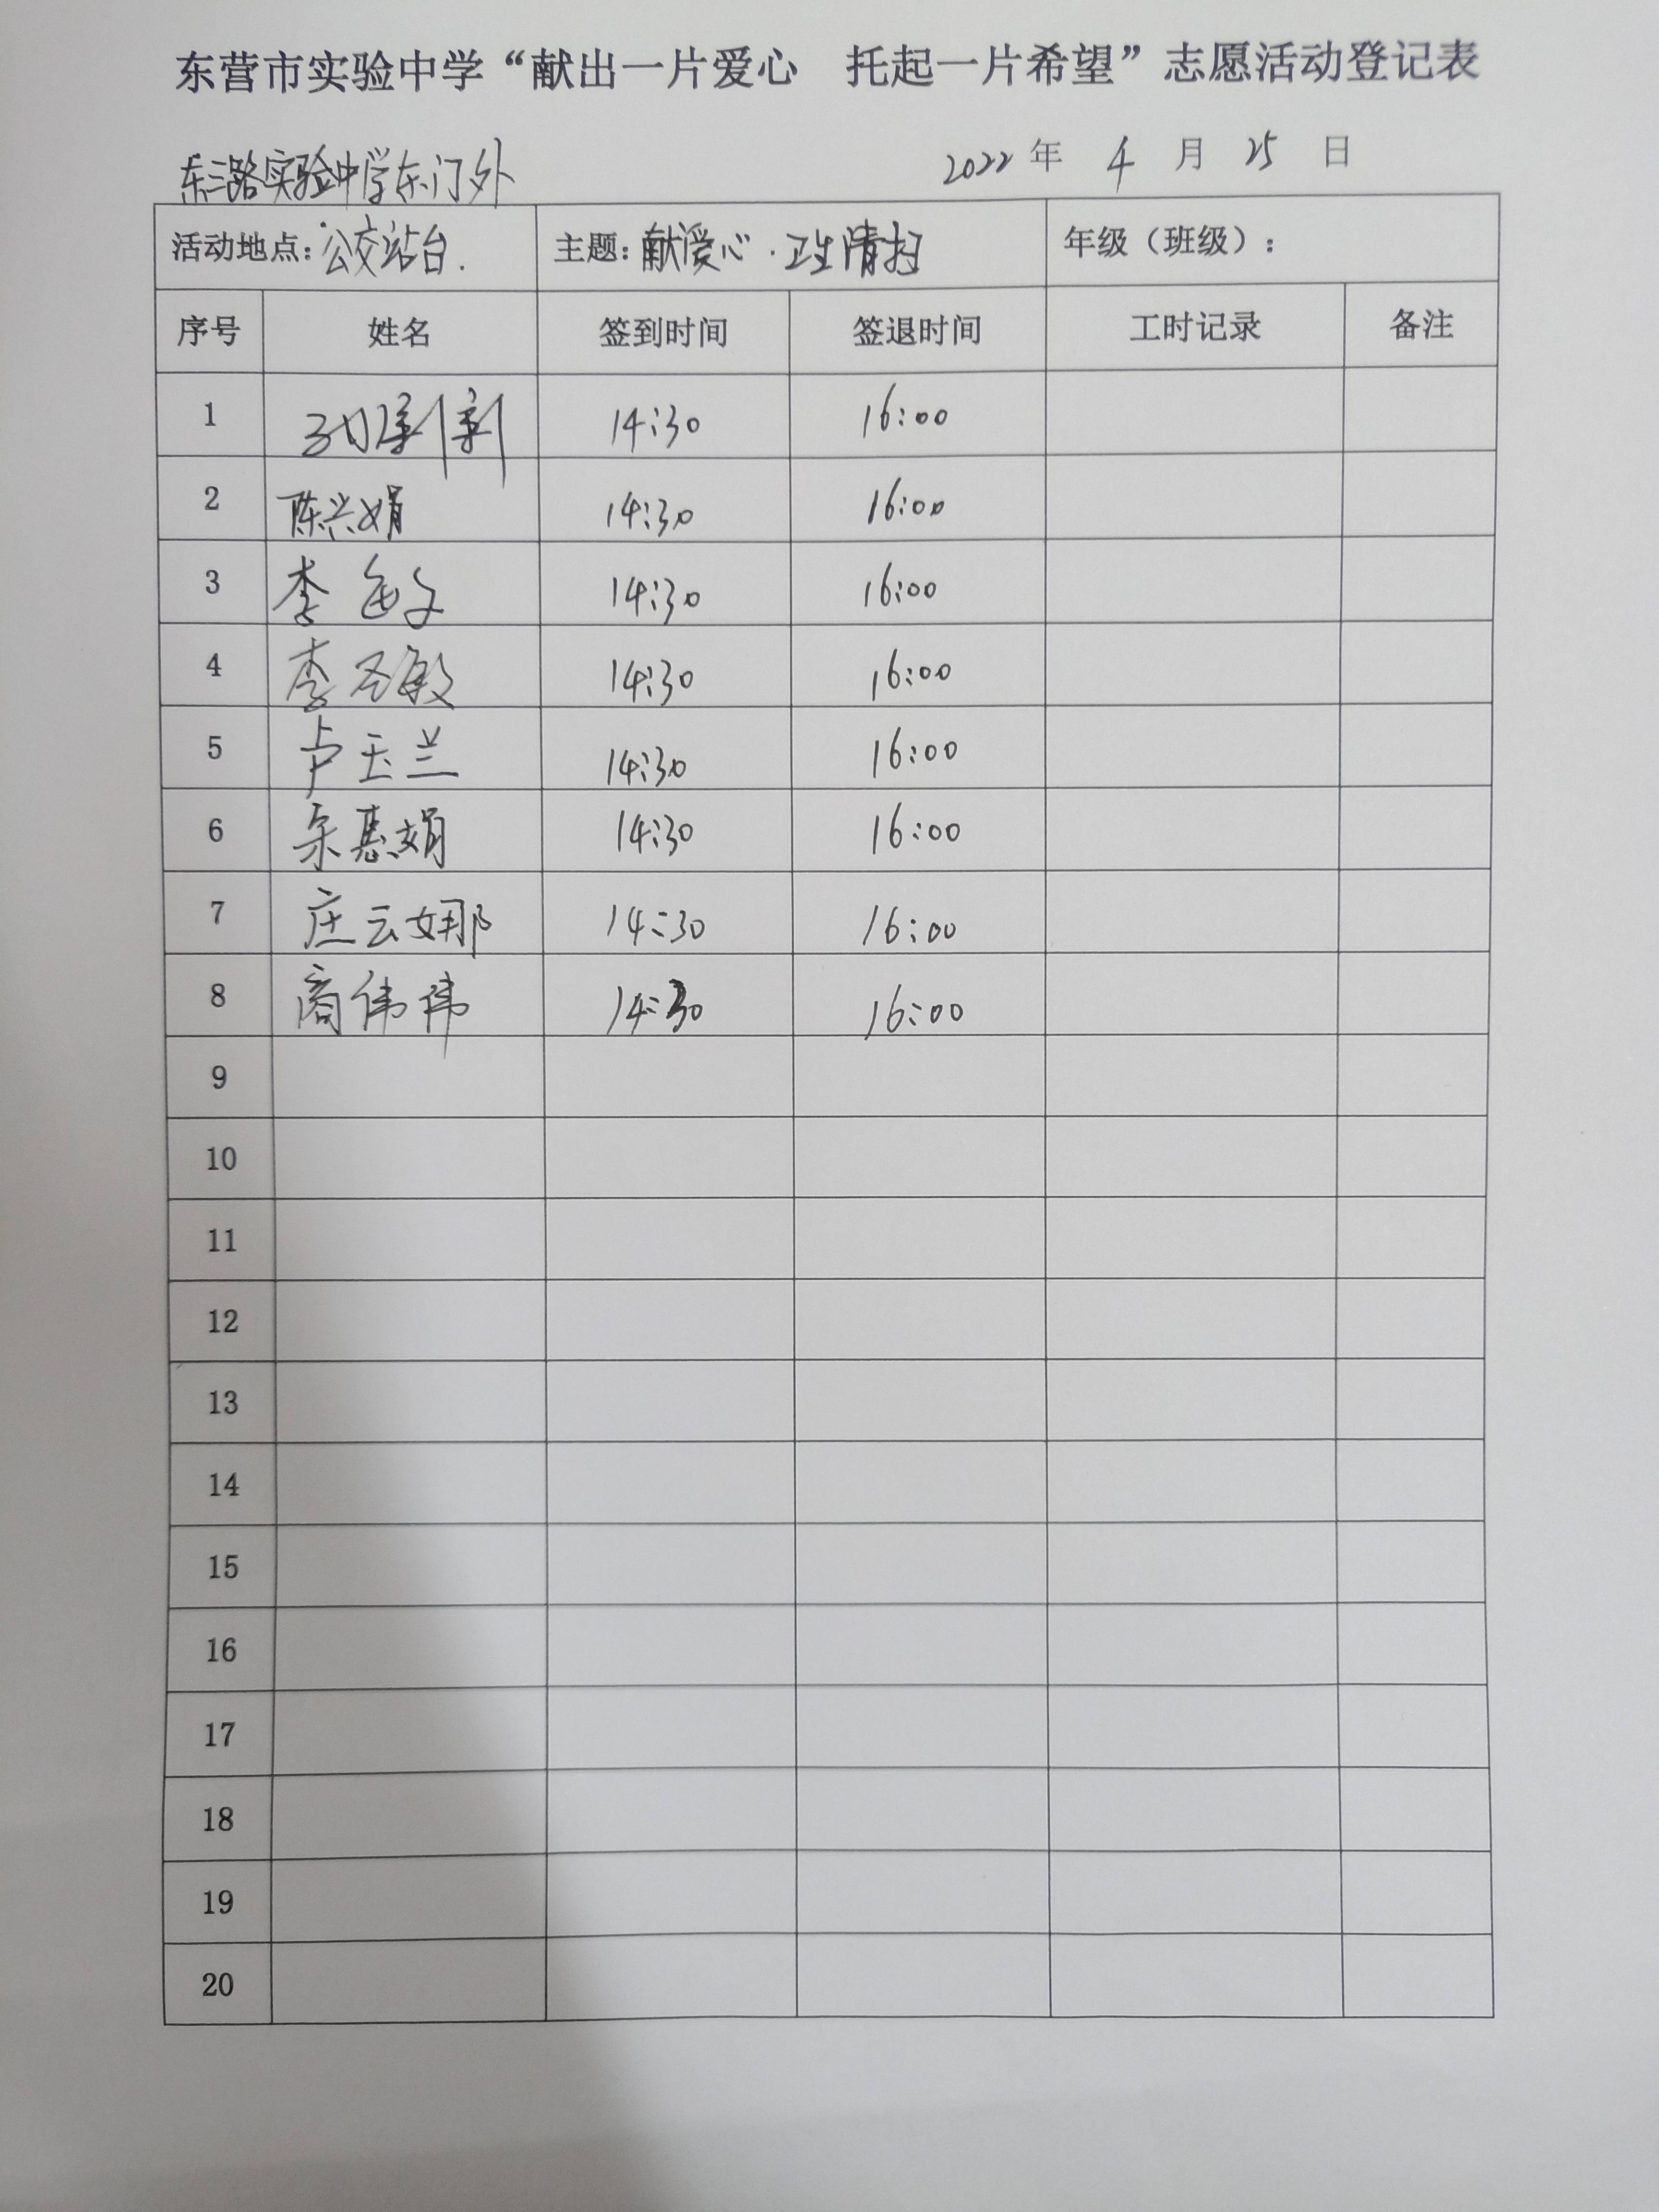 东营市实验中学“献出一片爱心 托起一片希望”志愿活动登记表
东三路实验中学东门外
2022年 4 月 25 日
活动地点:公交站台. 主题:献爱心·卫生清扫 年级(班级):
序号 姓名 签到时间 签退时间 工时记录 备注
1 14:30 16:00
2 陈兴娟 14:30 16:00
3 李 14:30 16:00
4 李圣敏 14:30 16:00
5 卢玉兰 14:30 16:00
6 宋惠娟 14:30 16:00
7 庄云娜 14:30 16:00
8 商伟伟 14:30 16:00
9
10
11
12
13
14
15
16
17
18
19
20